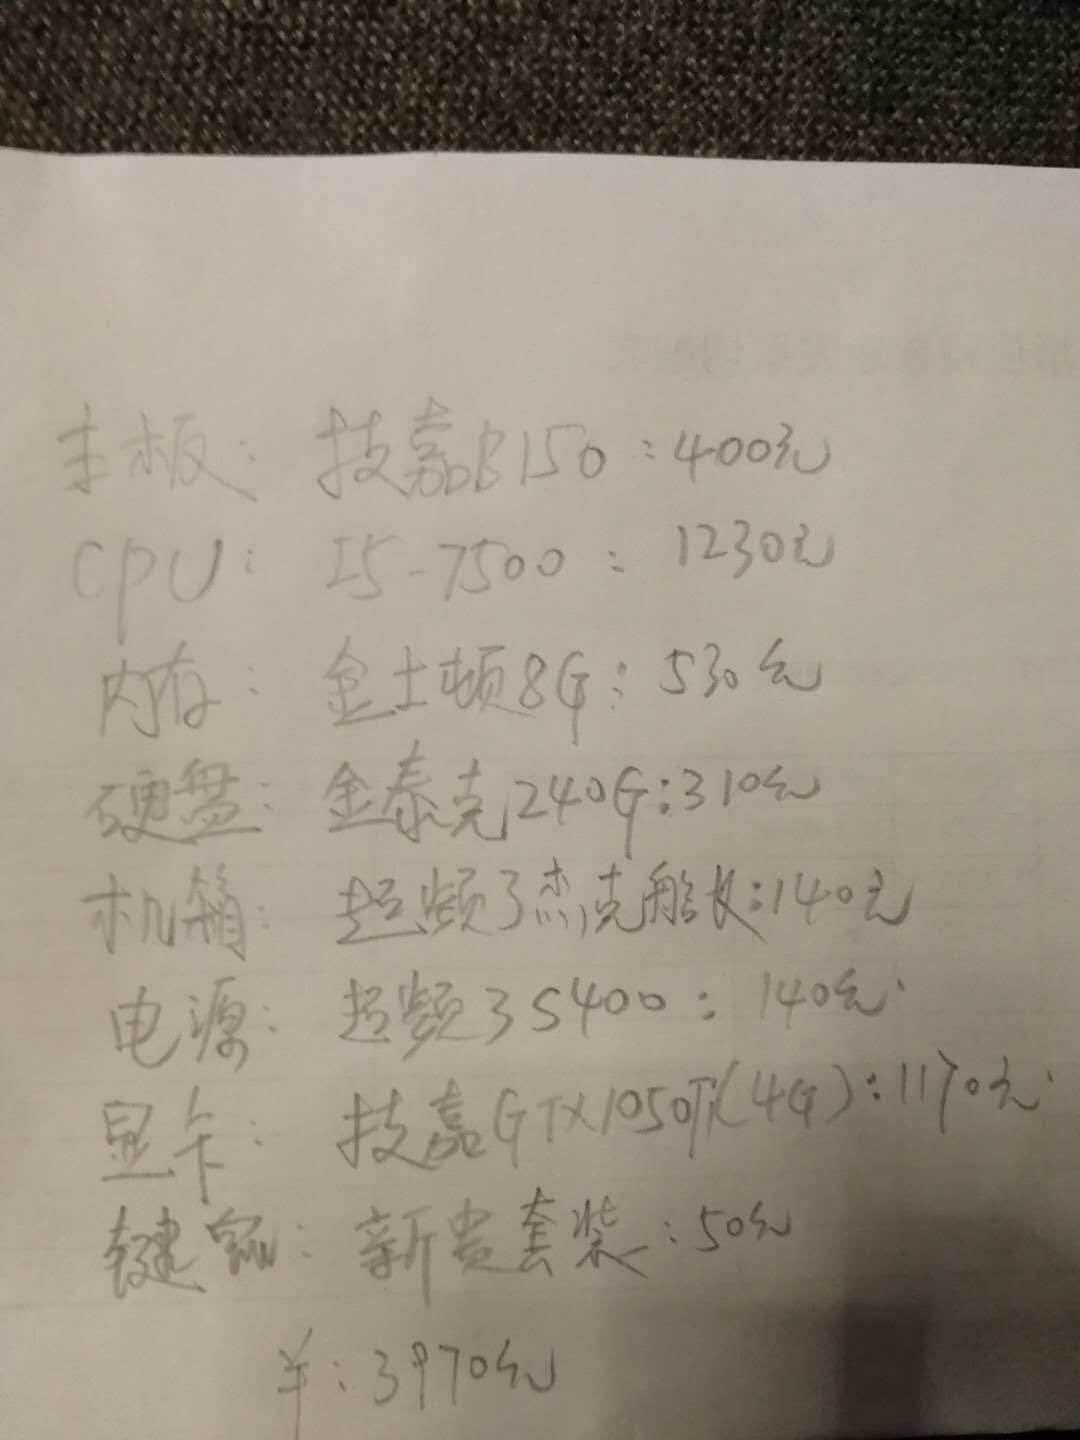 主板：技嘉B150：400元
CPU：I5-7500：1230元
内存：金士顿8G：530元
硬盘：金泰克240G：310元
机箱：超频3杰克船长：140元
电源：超频3S400：140元
显卡：技嘉GTX1050Ti(4G)：1170元
键鼠：新贵套装：50元
¥：3970元